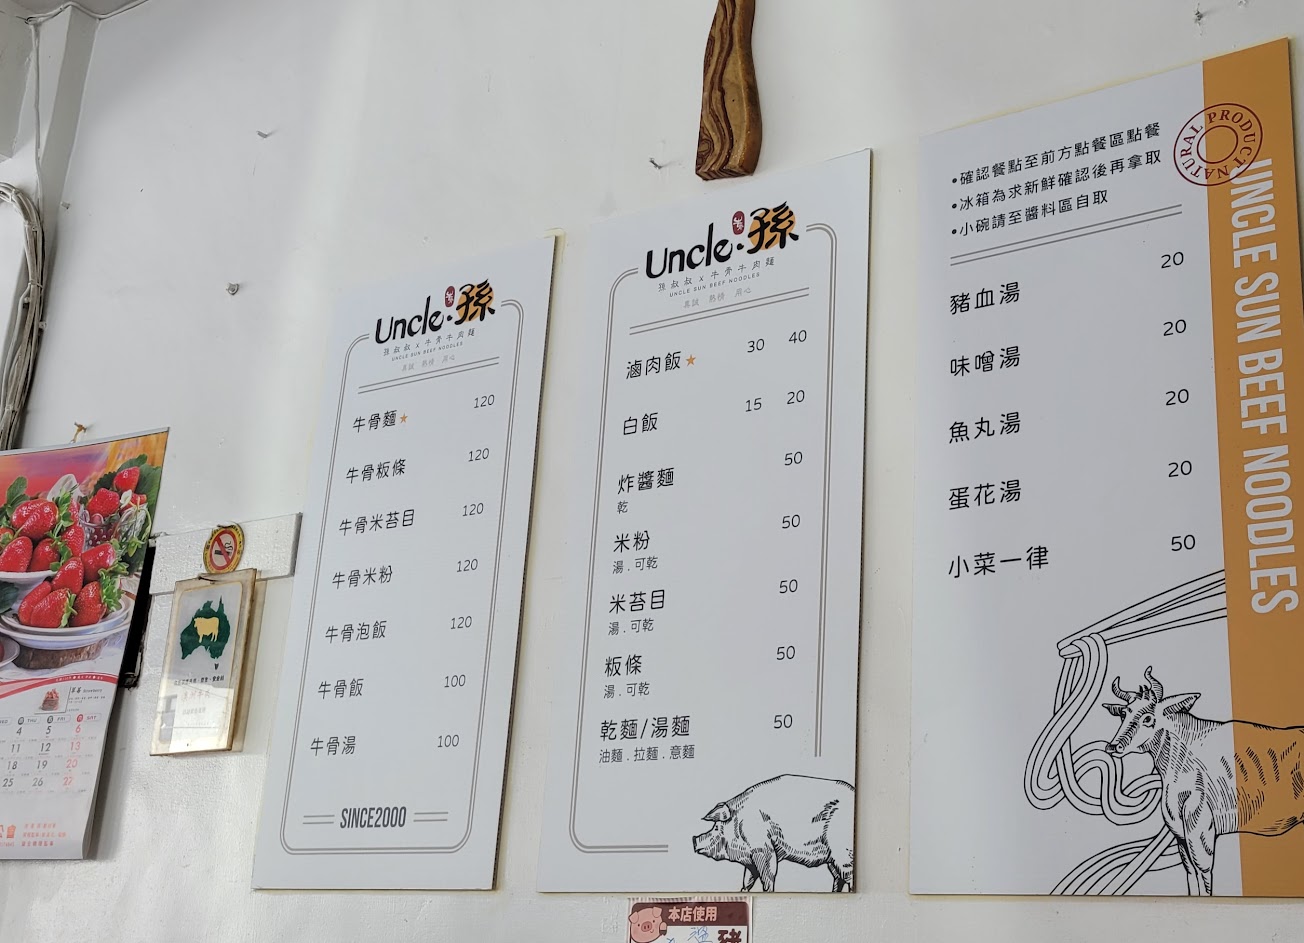 Uncle.孫
孫叔叔 x 牛骨牛肉麵
UNCLE SUN BEEF NOODLES
真誠 熱情 用心
牛骨麵★ 120
牛骨粄條 120
牛骨米苔目 120
牛骨米粉 120
牛骨泡飯 120
牛骨飯 100
牛骨湯 100
SINCE2000
Uncle.孫
孫叔叔 x 牛骨牛肉麵
UNCLE SUN BEEF NOODLES
真誠 熱情 用心
滷肉飯★ 30 40
白飯 15 20
炸醬麵 50
乾
米粉 50
湯.可乾
米苔目 50
湯.可乾
粄條 50
湯.可乾
乾麵/湯麵 50
油麵.拉麵.意麵
•確認餐點至前方點餐區點餐
•冰箱為求新鮮確認後再拿取
•小碗請至醬料區自取
豬血湯 20
味噌湯 20
魚丸湯 20
蛋花湯 20
小菜一律 50
NATURAL PRODUCT
UNCLE SUN BEEF NOODLES
THU FRI SAT
4 5 6
11 12 13
18 19 20
25 26 27
本店使用
豬